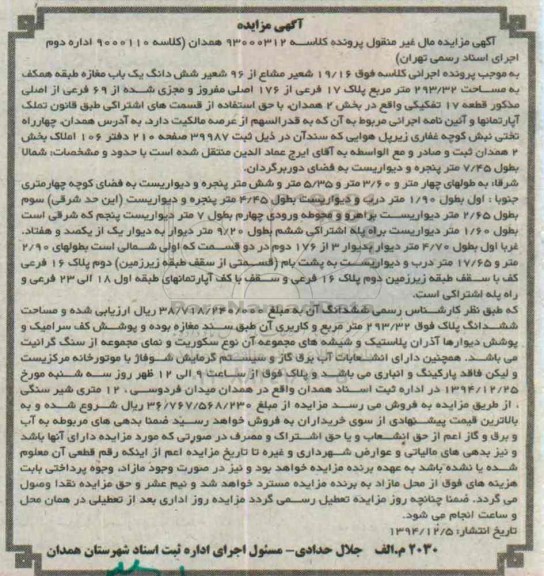 آگهی مزایده
آگهی مزایده مال غیر منقول پرونده کلاسه ۹۳۰۰۰۳۱۲ همدان (کلاسه ۹۰۰۰۱۱۰ اداره دوم
اجرای اسناد رسمی تهران)
به موجب پرونده اجرائی کلاسه فوق ۱۹/۱۶ شعیر مشاع از ۹۶ شعیر شش دانگ یک باب مغازه طبقه همکف
به مساحت ۲۹۳/۳۲ متر مربع پلاک ۱۷ فرعی از ۱۷۶ اصلی مفروز و مجزی شده از ۶۹ فرعی از اصلی
مذکور قطعه ۱۷ تفکیکی واقع در بخش ۲ همدان، با حق استفاده از قسمت های اشتراکی طبق قانون تملک
آپارتمانها و آئین نامه اجرائی مربوط به آن که به قدرالسهم از عرصه مالکیت دارد، به آدرس همدان، چهارراه
تختی نبش کوچه غفاری زیرپل هوایی که سندآن در ذیل ثبت ۳۹۹۸۷ صفحه ۲۱۰ دفتر ۱۰۶ املاک بخش
۲ همدان ثبت و صادر و مع الواسطه به آقای ایرج عماد الدین منتقل شده است با حدود و مشخصات: شمالا
بطول ۷/۴۵ متر پنجره و دیواریست به فضای دوربرگردان.
شرقا: به طولهای چهار متر و ۳/۶۰ متر و ۵/۳۵ متر و شش متر پنجره و دیواریست به فضای کوچه چهارمتری
جنوبا : اول بطول ۱/۹۰ متر درب و دیواریست بطول ۴/۴۵ متر پنجره و دیواریست (این حد شرقی) سوم
بطول ۲/۶۵ متر دیواریست براهرو و محوطه ورودی چهارم بطول ۷ متر دیواریست پنجم که شرقی است
بطول ۱/۶۰ متر دیواریست براه پله اشتراکی ششم بطول ۹/۲۰ متر دیوار به دیوار یک از یکصد و هفتاد.
غربا اول بطول ۴/۷۰ متر دیوار بدیوار ۳ از ۱۷۶ دوم در دو قسمت که اولی شمالی است بطولهای ۲/۹۰
متر و ۱۷/۶۵ متر درب و دیواریست به پشت بام (قسمتی از سقف طبقه زیرزمین) دوم پلاک ۱۶ فرعی
کف با سقف طبقه زیرزمین دوم پلاک ۱۶ فرعی و سقف با کف آپارتمانهای طبقه اول ۱۸ الی ۲۳ فرعی و
راه پله اشتراکی است.
که طبق نظر کارشناس رسمی ششدانگ آن به مبلغ ۳۸/۷۱۸/۲۴۰/۰۰۰ ریال ارزیابی شده و مساحت
ششدانگ پلاک فوق ۲۹۳/۳۲ متر مربع و کاربری آن طبق سند مغازه بوده و پوشش کف سرامیک و
پوشش دیوارها آذران پلاستیک و شیشه های مجموعه آن نوع سکوریت و نمای مجموعه از سنگ گرانیت
می باشد. همچنین دارای انشعابات آب برق گاز و سیستم گرمایش شوفاژ با موتورخانه مرکزیست
و لیکن فاقد پارکینگ و انباری می باشد و پلاک فوق از ساعت ۹ الی ۱۲ ظهر روز سه شنبه مورخ
۱۳۹۴/۱۲/۲۵ در اداره ثبت اسناد همدان واقع در همدان میدان فردوسی، ۱۲ متری شیر سنگی
، از طریق مزایده به فروش می رسد مزایده از مبلغ ۳۶/۷۶۷/۵۶۸/۲۳۰ ریال شروع شده و به
بالاترین قیمت پیشنهادی از سوی خریداران به فروش خواهد رسید ضمنا بدهی های مربوطه به آب
و برق و گاز اعم از حق انشعاب و یا حق اشتراک و مصرف در صورتی که مورد مزایده دارای آنها باشد
و نیز بدهی های مالیاتی و عوارض شهرداری و غیره تا تاریخ مزایده اعم از اینکه رقم قطعی آن معلوم
شده یا نشده باشد به عهده برنده مزایده خواهد بود و نیز در صورت وجود مازاد، وجوه پرداختی بابت
هزینه های فوق از محل مازاد به برنده مزایده مسترد خواهد شد و نیم عشر و حق مزایده نقدا وصول
می گردد. ضمنا چنانچه روز مزایده تعطیل رسمی گردد مزایده روز اداری بعد از تعطیلی در همان محل
و ساعت انجام می شود.
تاریخ انتشار: ۱۳۹۴/۱۲/۵
۲۰۳۰ م.الف جلال حدادی- مسئول اجرای اداره ثبت اسناد شهرستان همدان